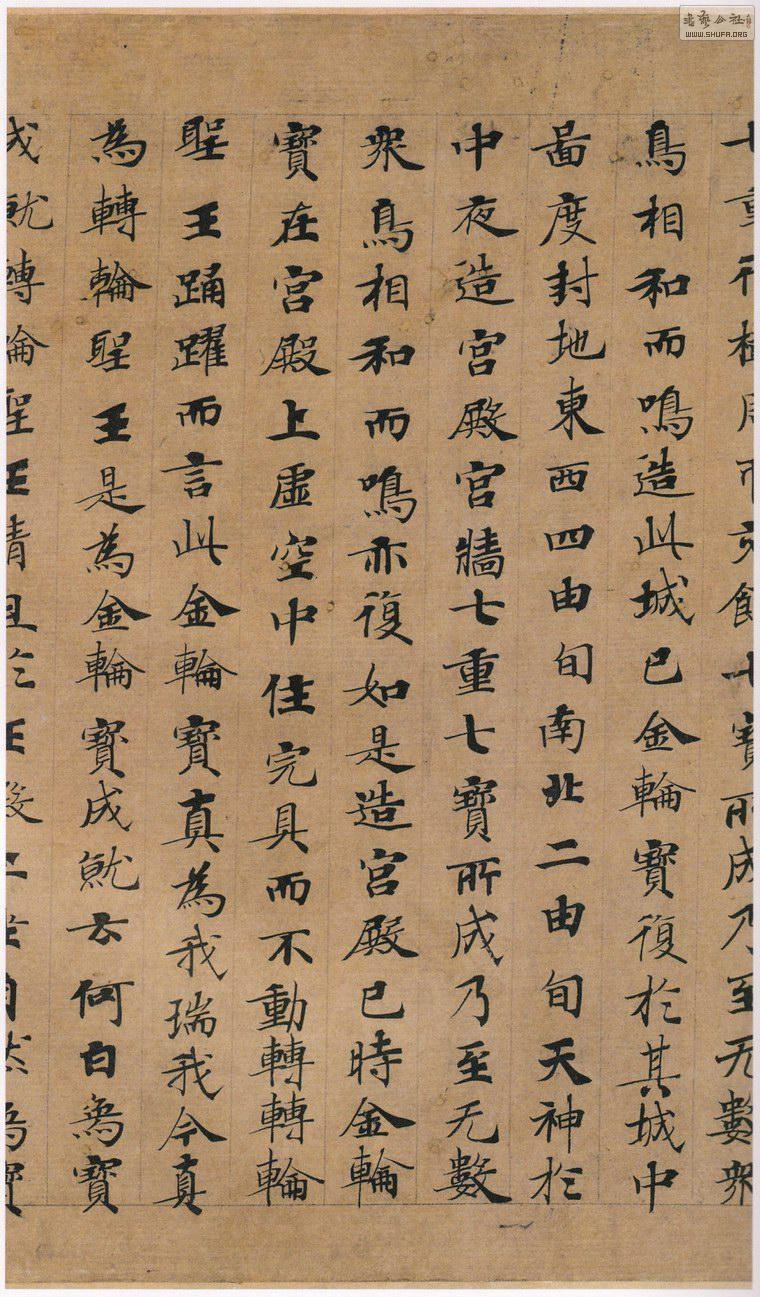 七重行樹周匝交飾七寶所成乃至无數眾
鳥相和而鳴造此城已金輪寶復於其城中
啚度封地東西四由旬南北二由旬天神於
中夜造宮殿宮牆七重七寶所成乃至无數
眾鳥相和而鳴亦復如是造宮殿已時金輪
寶在宮殿上虛空中住完具而不動轉轉輪
聖王踊躍而言此金輪寶真為我瑞我今真
為轉輪聖王是為金輪寶成就云何白象寶
成就轉輪聖王清旦於正殿上坐自然象寶
书艺公社
WWW.SHUFA.ORG